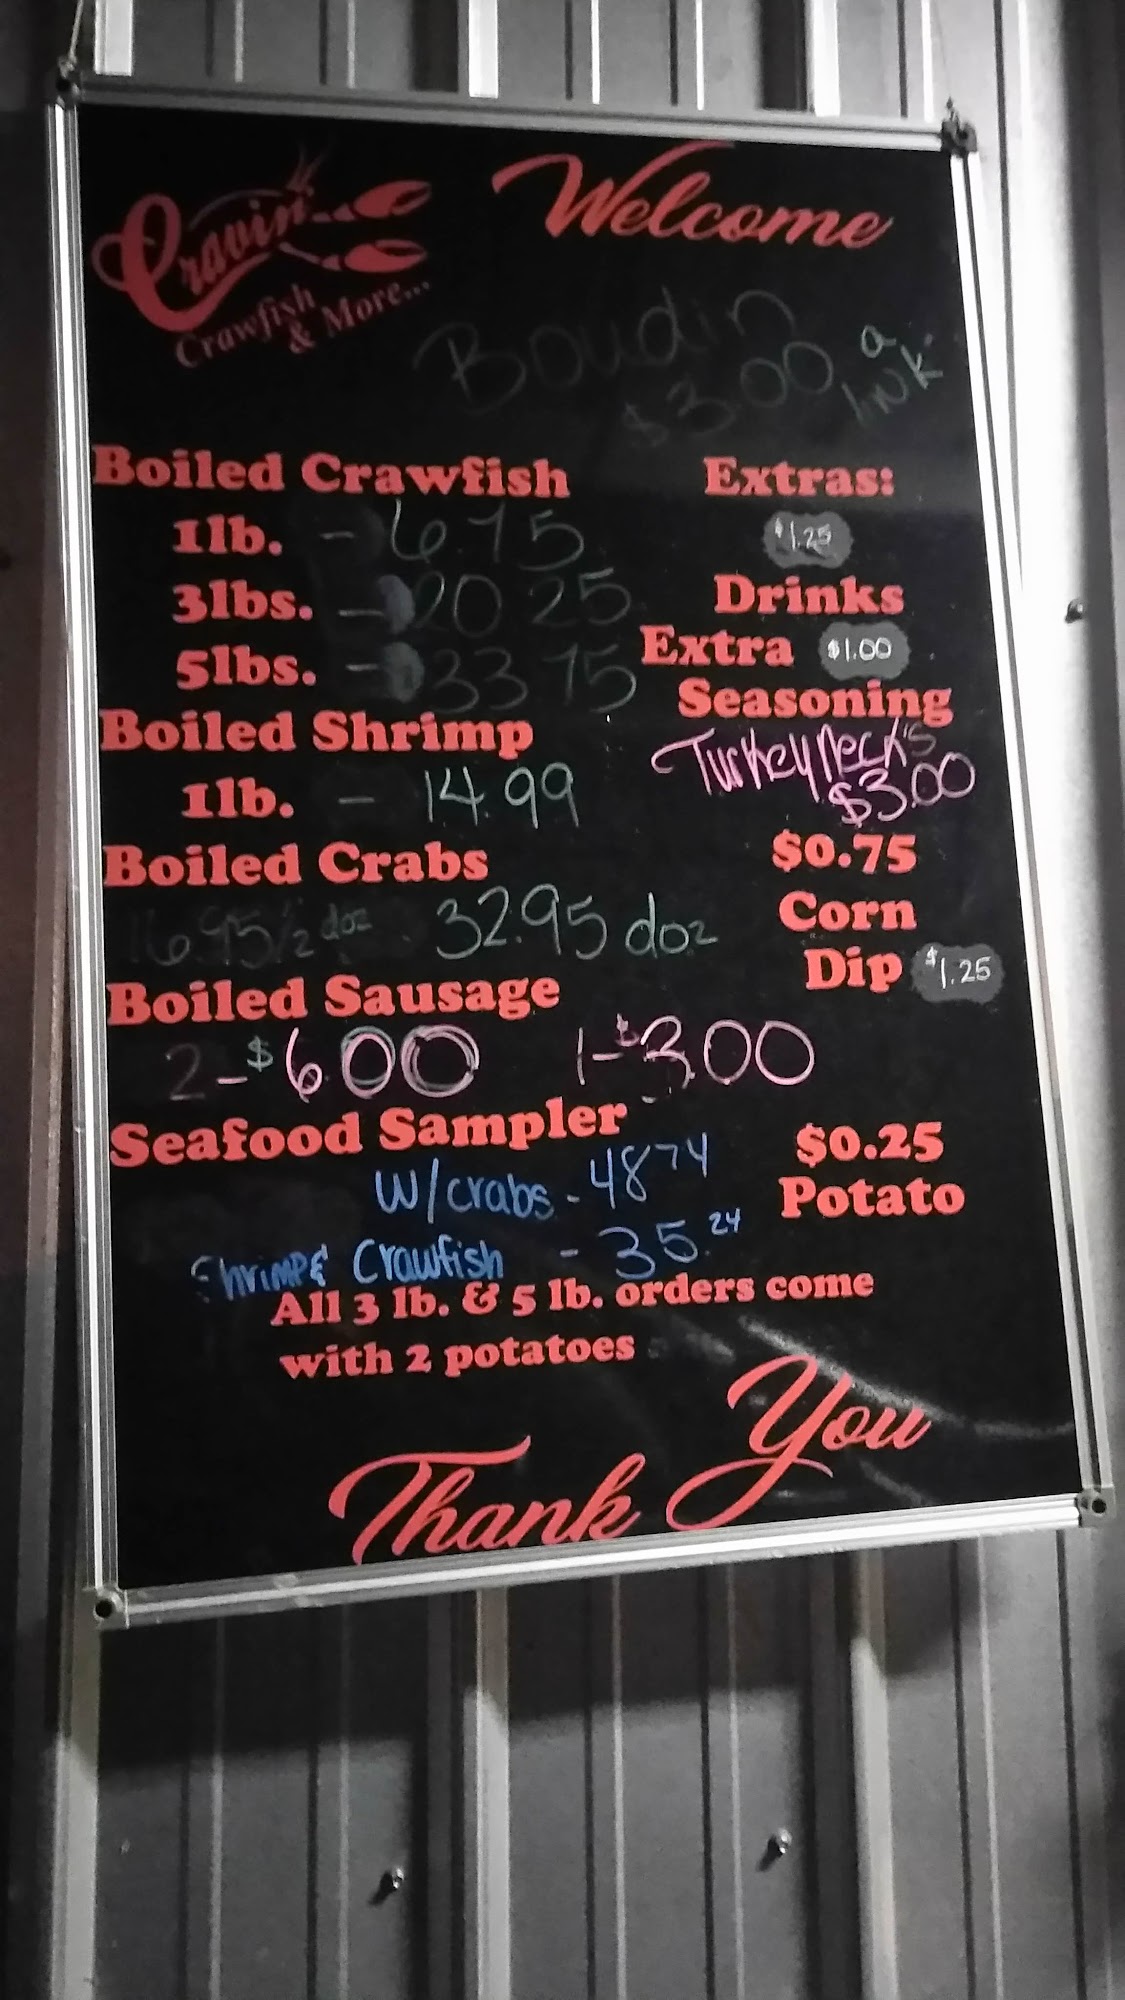 Cravin'
Crawfish
& More...
Welcome
Boudin
$3.00 a
link.
Boiled Crawfish
1lb. - 6.75
3lbs. - 20 25
5lbs. - 33 75
Boiled Shrimp
1lb. - 14.99
Boiled Crabs
16.95 1/2 doz 32.95 doz
Boiled Sausage
2-$6.00 1-$3.00
Seafood Sampler
W/crabs - 48 74
Shrimp & Crawfish - 35.24
All 3 lb. & 5 lb. orders come
with 2 potatoes
Extras:
$1.25
Drinks
Extra $1.00
Seasoning
Turkey Neck's
$3.00
$0.75
Corn
Dip $1.25
$0.25
Potato
Thank You